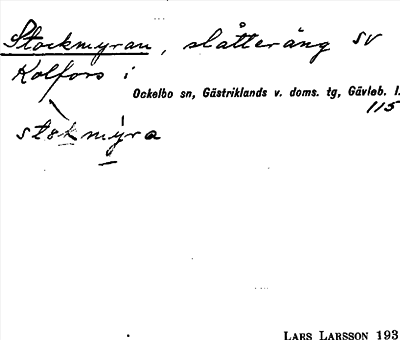 Stockmyran, slåtteräng SV
Kolfors i
Ockelbo sn, Gästriklands v. doms. tg, Gävleb. l.
115
stokmyra
LARS LARSSON 193